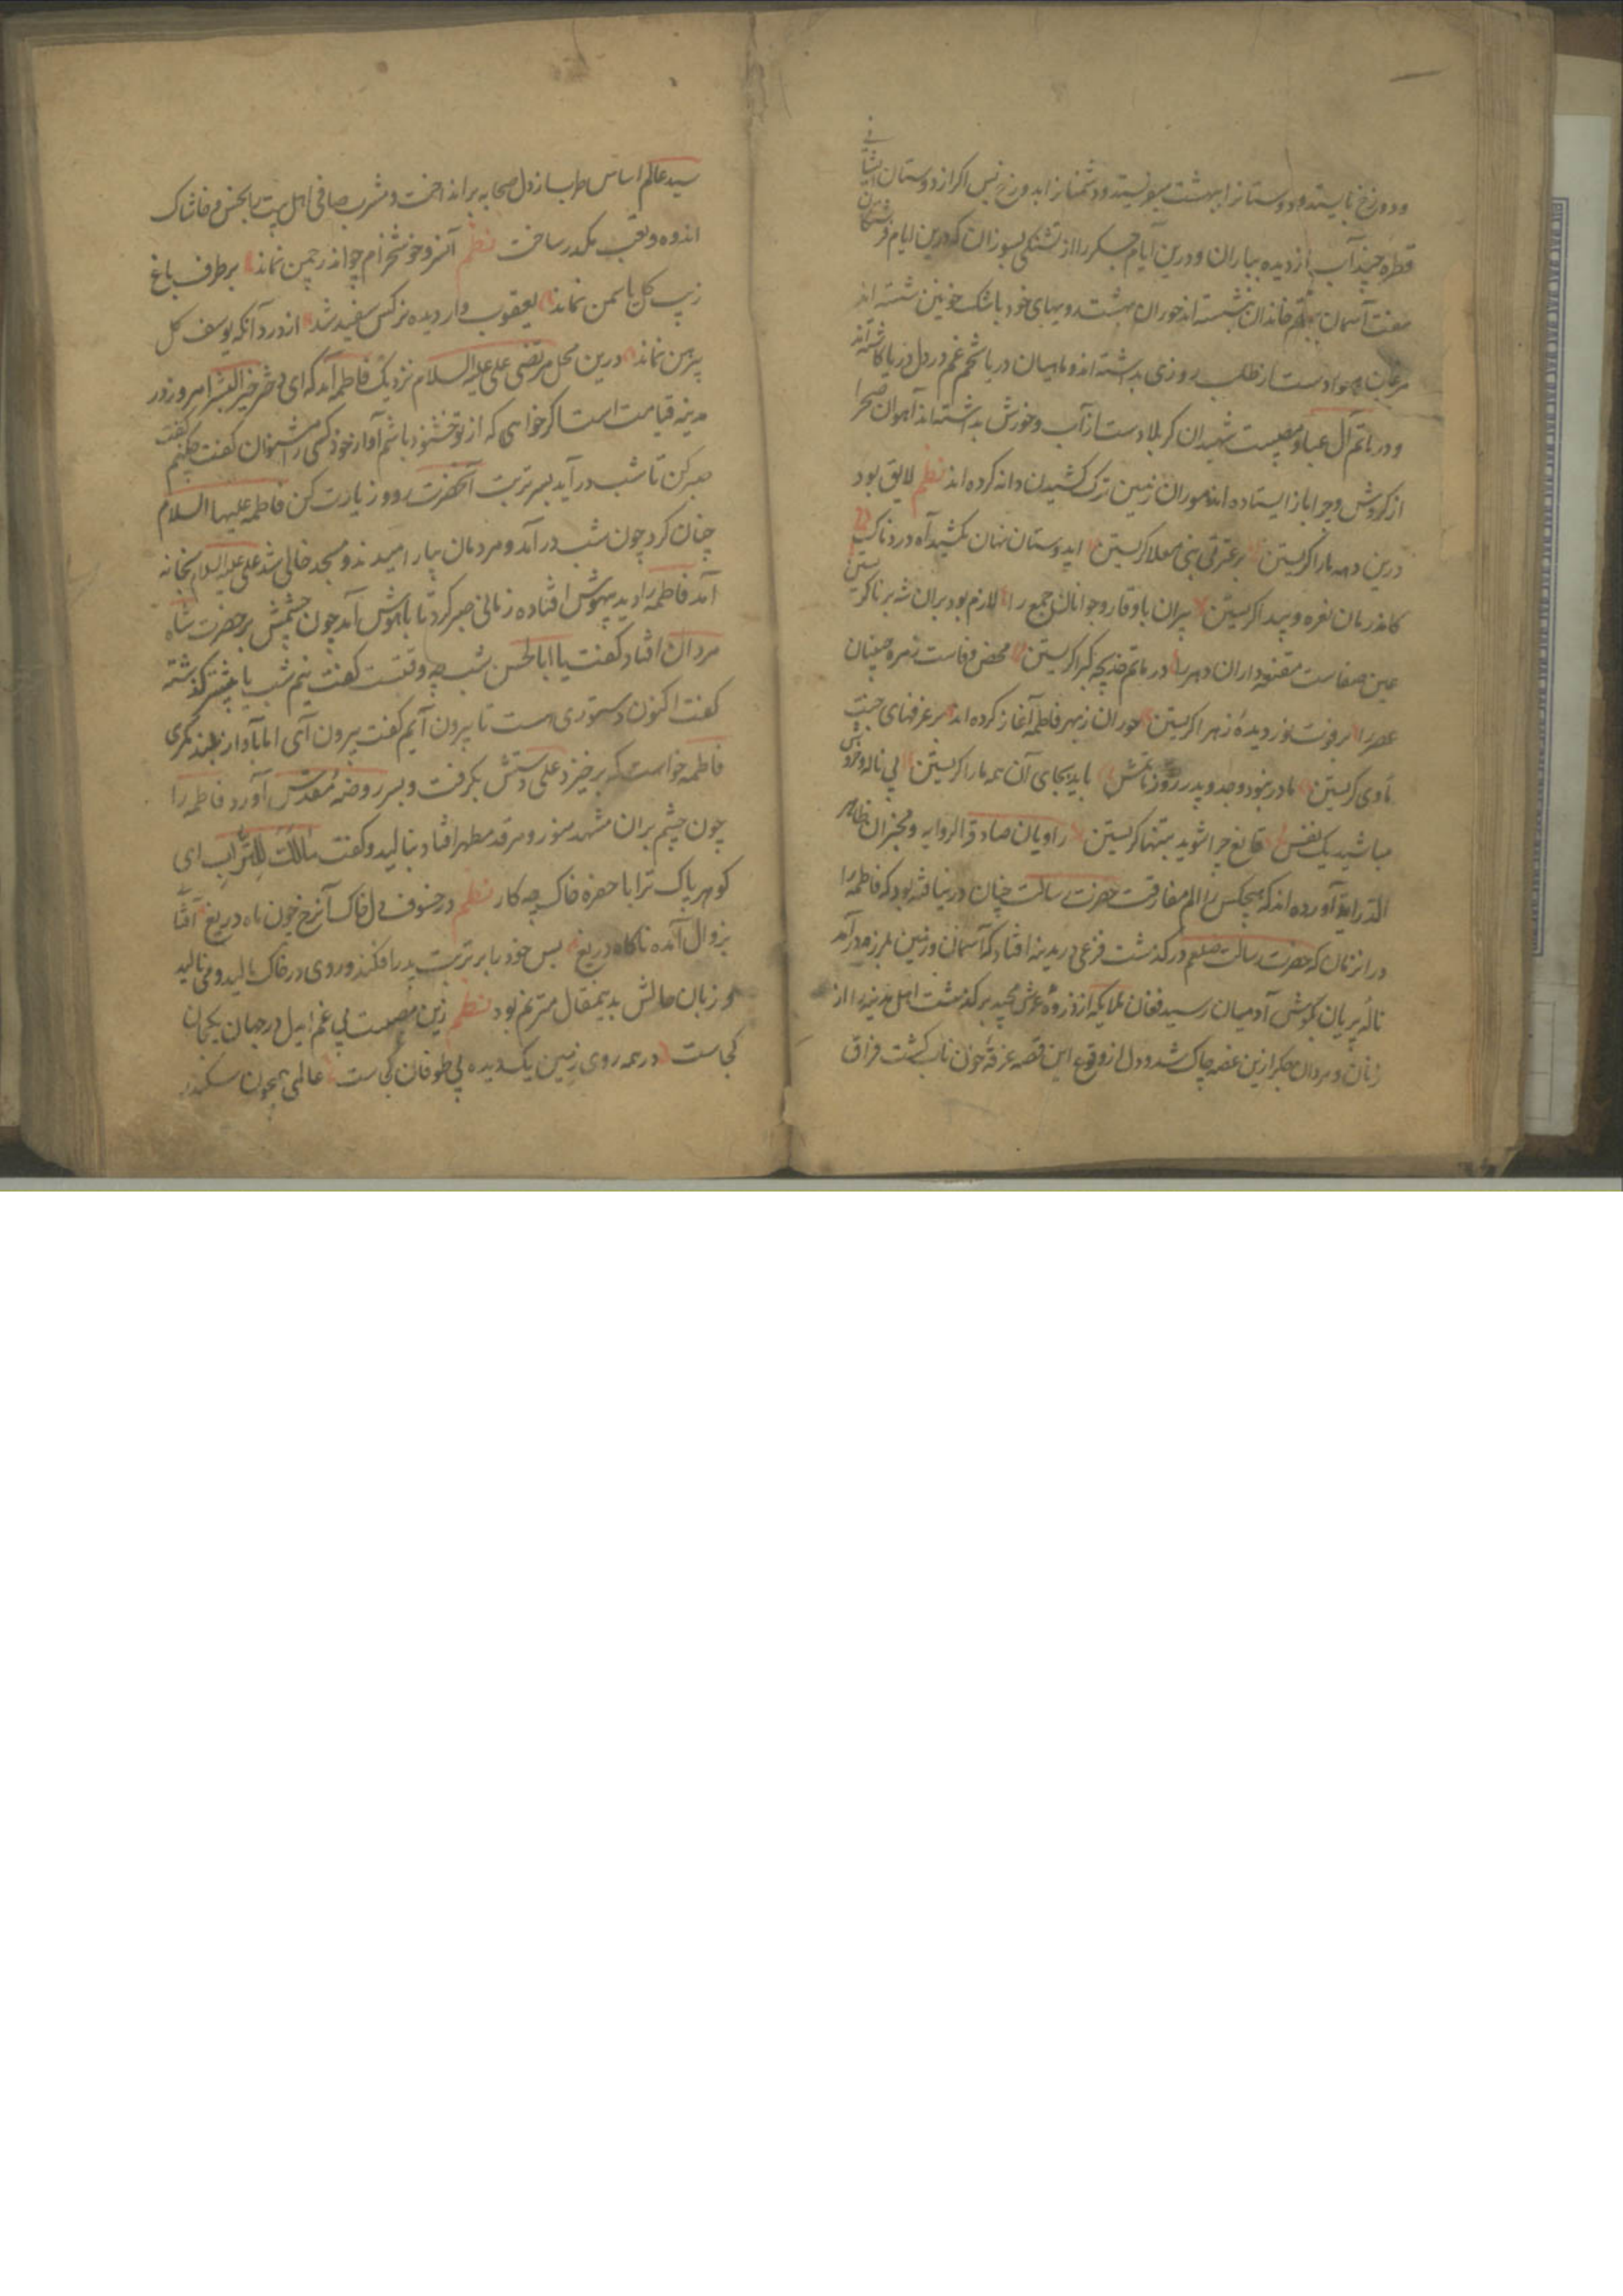 ودوزخ نایستد و دوستانرا ببهشت میفرستد و دشمنانرا بدوزخ پس اکر از دوستان ایشانی
قطره چند آب از دیده بباران و درین ایام جکر را از تشنکی بسوزان که درین ایام فرشتکان
هفت آسمان بماتم خاندان نشسته اند حوران بهشت رویهای خود باشک خونین شسته اند
مرغان هوا دست از طلب روزی بداشته اند و ماهیان دریا تخم غم در دل دریا کاشته اند
و در ماتم آل عبا و مصیبت شهیدان کربلا دست از آب و خورش بداشته اند آهوان صحرا
از کردش و چرا باز ایستاده اند موران زمین ترک کشیدن دانه کرده اند نظم لایق بود
درین دهه ما را کریستن بر عترت نبی معلا کریستن ایدوستان نهان مکشید آه دردناک
کامد زمان نعره و پیدا کریستن پیران باوقار و جوانان جمع را لازم بود بران شه برنا کریستن
عین صفاست مقنعه داران دهر را در ماتم خدیجه کبرا کریستن محض وفاست زمره جنینان
عصر را بر فوت نور دیده زهرا کریستن حوران ز بهر فاطمه آغاز کرده اند بر غرفهای جنت
مأوی کریستن مادر نبود و جد و پدر روز ماتمش باید بجای آن همه ما را کریستن بی ناله و خروش
مباشید یک نفس قانع چرا شوید بتنها کریستن راویان صادق الروایه و مخبران ظاهر
الدرایه آورده اند که هیچکس را الم مفارقت حضرت رسالت چنان درنیافته بود که فاطمه را
در انزمان که حضرت رسالت صلعم در کذشت فزعی در مدینه افتاد که آسمان و زمین بلرزه درآمد
ناله پریان بکوش آدمیان رسید فغان ملایکه از ذروه عرش مجید بر کذشت اهل مدینه را از
زنان و مردان جکر ازین غصه چاک شد و دل از وقوع این قصه غرقه خون ناب کشت فراق
سید عالم اساس طرب از دل صحابه برانداخت و مشرب صافی اهل بیت را بخس و خاشاک
اندوه و تعب مکدر ساخت نظم آنسرو خوشخرام چو اندر چمن نماند بر طرف باغ
زیب کل یاسمن نماند یعقوب وار دیده نرکس سفید شد از درد آنکه یوسف کل
پیرهن نماند درین محل مرتضی علی علیه السلام نزدیک فاطمه آمد که ای دختر خیر البشر امروز در
مدینه قیامت است اکر خواهی که از تو خشنود باشم آواز خود کسی را مشنوان کفت چکنم کفت
صبر کن تا شب درآید بسر تربت آنحضرت رو و زیارت کن فاطمه علیها السلام
چنان کرد چون شب درآمد و مردمان بیارامیدند و مسجد خالی شد علی علیه السلام بخانه
آمد فاطمه را دید بیهوش افتاده زمانی صبر کرد تا باهوش آمد چون چشمش بر حضرت شاه
مردان افتاد کفت یا ابا الحسن شب چه وقتست کفت نیم شب یا بیشتر کذشته
کفت اکنون دستوری هست تا بیرون آیم کفت بیرون آی اما بآواز بلند نکری
فاطمه خواست که برخیزد علی دستش بکرفت و بسر روضه مقدس آورد فاطمه را
چون چشم بران مشهد منور و مرقد مطهر افتاد بنالید و کفت مالک للتراب ای
کوهر پاک ترا با حفره خاک چه کار نظم در خسوف دل خاک آنرخ چون ماه دریغ آفتاب
بزوال آمده ناکاه دریغ پس خود را بر تربت پدر افکند و روی در خاک مالید و می نالید
و زبان حالش بدینمقال مترنم بود نظم زین مصیبت بی غم ایدل در جهان یکجان
کجاست در همه روی زمین یک دیده بی طوفان کجاست عالمی همچون سکندر